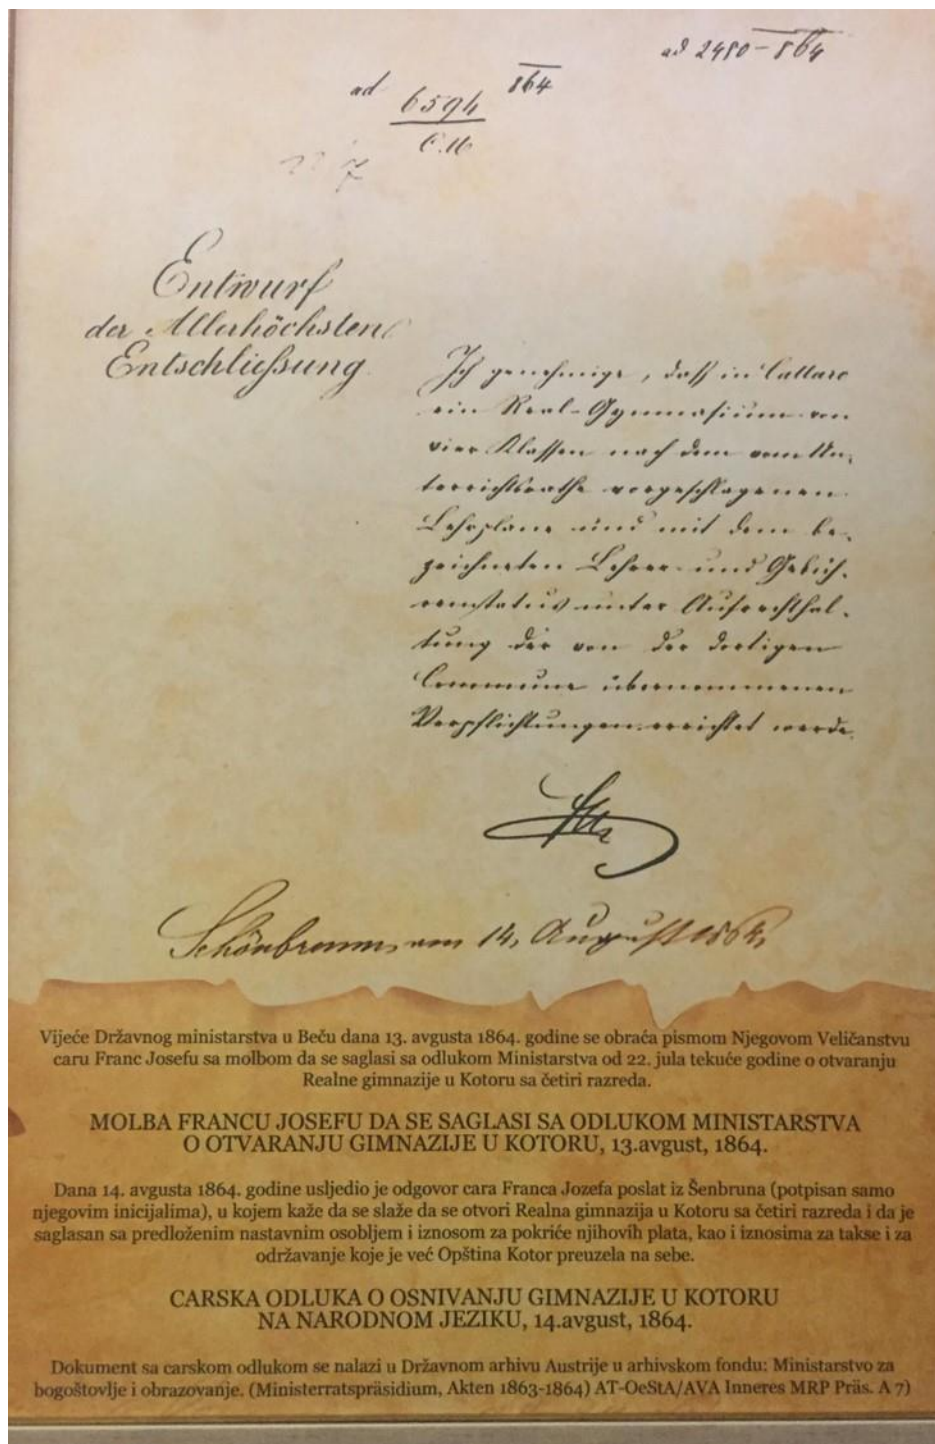 ad 2480-864
ad 6594 864
C.U.
Entwurf
der Allerhöchsten
Entschließung
Ich genehmige, daß in Cattaro
ein Real-Gymnasium von
vier Klassen nach dem vom Un-
terrichtsrathe vorgeschlagenen
Lehrplane und mit dem be-
zeichneten Lehrer- und Gebüh-
renstatus unter Aufrechthal-
tung der von der dortigen
Commune übernommenen
Verpflichtungen errichtet werde.
Schönbrunn, am 14. August 1864.
Vijeće Državnog ministarstva u Beču dana 13. avgusta 1864. godine se obraća pismom Njegovom Veličanstvu
caru Franc Josefu sa molbom da se saglasi sa odlukom Ministarstva od 22. jula tekuće godine o otvaranju
Realne gimnazije u Kotoru sa četiri razreda.
MOLBA FRANCU JOSEFU DA SE SAGLASI SA ODLUKOM MINISTARSTVA
O OTVARANJU GIMNAZIJE U KOTORU, 13.avgust, 1864.
Dana 14. avgusta 1864. godine usljedio je odgovor cara Franca Jozefa poslat iz Šenbruna (potpisan samo
njegovim inicijalima), u kojem kaže da se slaže da se otvori Realna gimnazija u Kotoru sa četiri razreda i da je
saglasan sa predloženim nastavnim osobljem i iznosom za pokriće njihovih plata, kao i iznosima za takse i za
održavanje koje je već Opština Kotor preuzela na sebe.
CARSKA ODLUKA O OSNIVANJU GIMNAZIJE U KOTORU
NA NARODNOM JEZIKU, 14.avgust, 1864.
Dokument sa carskom odlukom se nalazi u Državnom arhivu Austrije u arhivskom fondu: Ministarstvo za
bogoštovlje i obrazovanje. (Ministerratspräsidium, Akten 1863-1864) AT-OeStA/AVA Inneres MRP Präs. A 7)